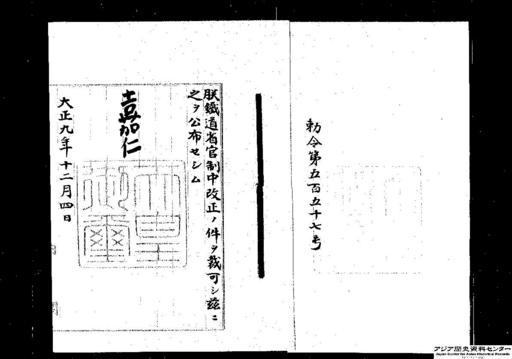 勅令第五百五十七号
朕鐵道省官制中改正ノ件ヲ裁可シ茲ニ
之ヲ公布セシム
嘉仁
天皇御璽
大正九年十二月四日
アジア歴史資料センター
Japan Center for Asian Historical Records